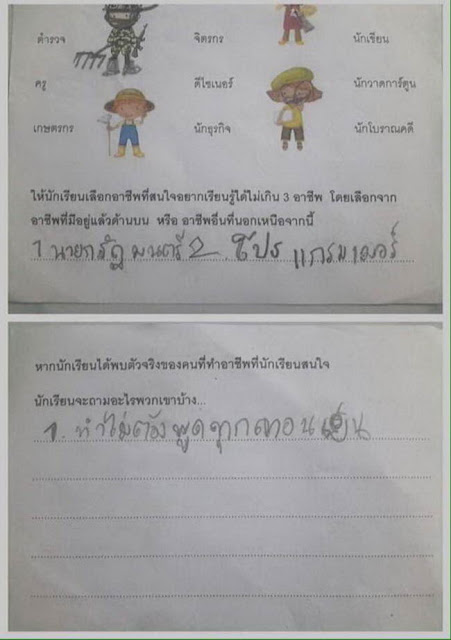 ตำรวจ จิตรกร นักเขียน
ครู ดีไซเนอร์ นักวาดการ์ตูน
เกษตรกร นักธุรกิจ นักโบราณคดี
ให้นักเรียนเลือกอาชีพที่สนใจอยากเรียนรู้ได้ไม่เกิน 3 อาชีพ โดยเลือกจาก
อาชีพที่มีอยู่แล้วด้านบน หรือ อาชีพอื่นที่นอกเหนือจากนี้
1 นายกรัฐมนตรี 2. โปรแกรมเมอร์
หากนักเรียนได้พบตัวจริงของคนที่ทำอาชีพที่นักเรียนสนใจ
นักเรียนจะถามอะไรพวกเขาบ้าง...
1. ทำไม่ต้องพูดทุกตอนเย็น